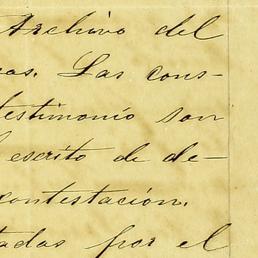 Archivo del
as. Las cons-
testimonio son
escrito de de-
contestación.
tadas por el